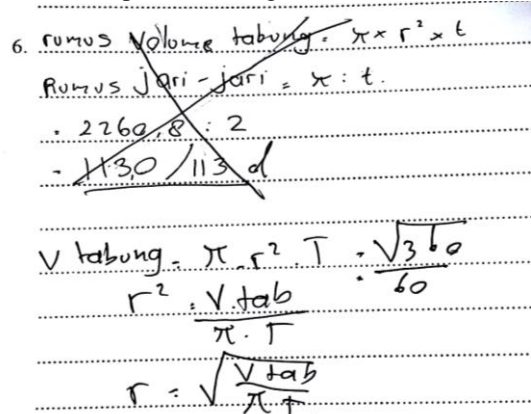 6. rumus Volume tabung = π × r² × t
Rumus jari-jari = π : t.
= 2260,8 : 2
= 113,0 / 113 d
V tabung = π . r² . T = √360 / 60
r² = V.tab / π . T
r = √(V tab / π T)